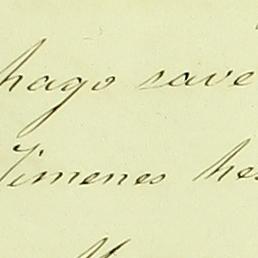 hago save
Jimenes he